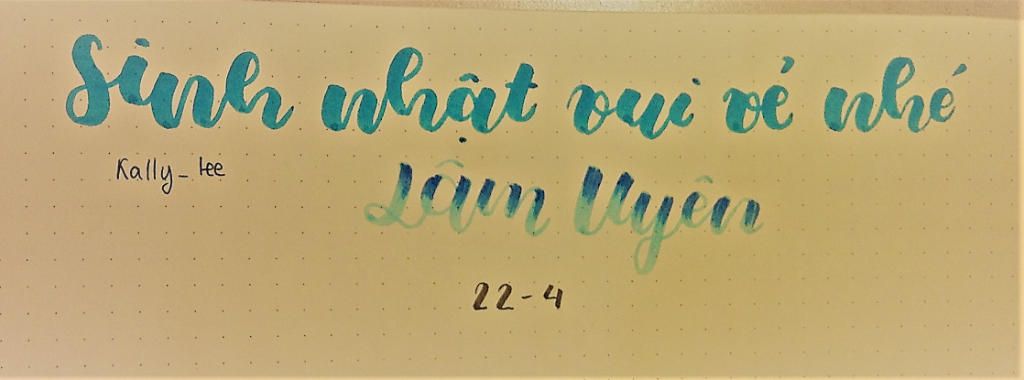 Sinh nhật vui vẻ nhé
Kally_tee
Lâm Uyên
22-4